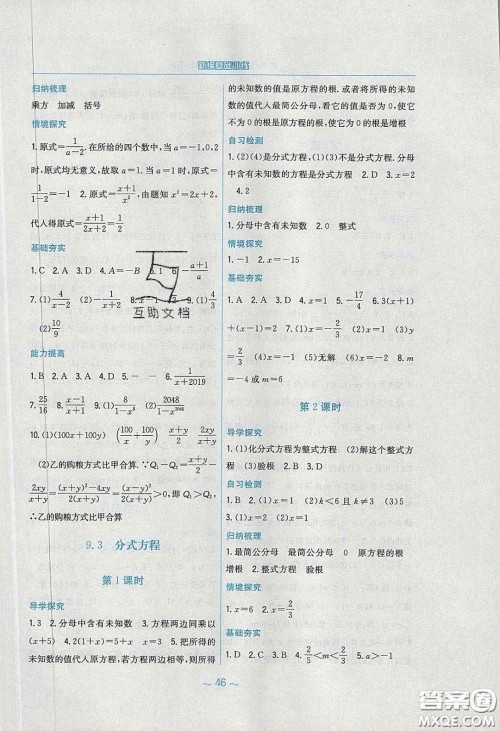 新编基础训练
归纳梳理
乘方 加减 括号
情境探究
1.原式=1/(a-2). 在所给的四个数中,当a=-1,0,2
时,原式均无意义,故取a=1. 当a=1时,原式=
1/(1-2)=-1 2.原式=(x+1)/x². 由题意知 x²=2x+2,
代入得原式=(x+1)/(2x+2)=1/2
基础夯实
1.C 2.A 3.D 4.A=-B
7.(1)4/(x-2) (2)-a/(a+1)
(2)10/9
能力提高
1.B 2.A 3.C 4.D 5.- - 6.1/(x+2019)
10.(1)(100x+100y) (100/x+100/y) (x+y)/2 2xy/(x+y)
(2)乙的购粮方式比甲合算. ∵Q₁-Q₂=(x+y)/2-
2xy/(x+y)=((x+y)²-4xy)/(2(x+y))=(x-y)²/(2(x+y))>0,即 Q₁>Q₂,
∴乙的购粮方式比甲合算
9.3 分式方程
第1课时
导学探究
1.3 2.分母中含有未知数 3.方程两边同乘以
(x+5) 4.2(1+x)=5+x x=3 5.把所得的
未知数的值代入原方程,若方程两边相等,则所得
的未知数的值是原方程的根. 或者将所得的未知
数的值代入最简公分母,看它的值是否为0,使它
不为0的根是原方程的根,使它为0的根是增根
自习检测
1.(2)(4)是分式方程,(1)(3)不是分式方程. 分母
中含有未知数的方程是分式方程 2.D 3.x=2
4.2
归纳梳理
1.分母中含有未知数 2.0 整式
情境探究
1.-1 2.x=-15
基础夯实
1.D 2.D 3.A 4.x=3 5.-17/4 6.3(x+1)
+(x-1)=0 7.(1)x=0 (2)x=-2/3 (3)y
=-2/3 (4)x=-1/3 (5)无解 (6)x=2 8.m
=-4或m=6
第2课时
导学探究
1.(1)化分式方程为整式方程 (2)解这个整式方
程 (3)验根 2.D
自习检测
1.D 2.(1)x=1 (2)k<6且k≠3 3.x=5
归纳梳理
1.最简公分母 最简公分母 0 原方程的根
增根 2.整式方程 验根
情境探究
1.x=6 2.x=2/3
基础夯实
1.D 2.A 3.D 4.2/5<m<2/3 5.a>-1
~ 46 ~
互助文档
答案圈
MXQE.COM